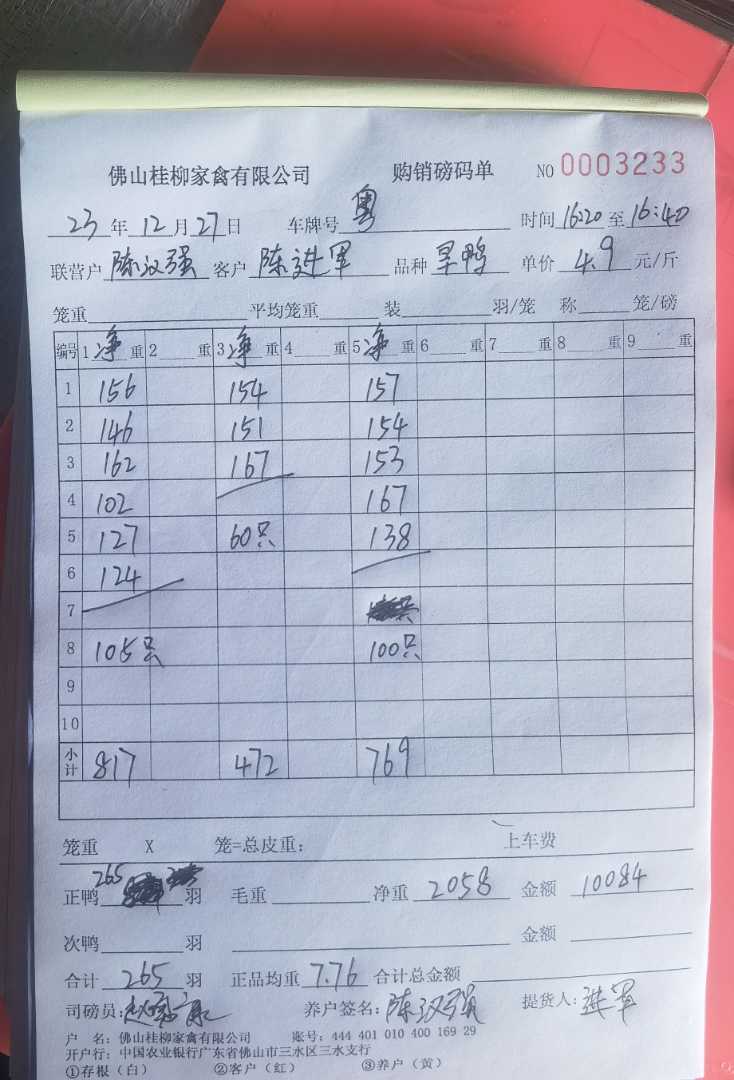 佛山桂柳家禽有限公司 购销磅码单 NO 0003233
23年12月27日 车牌号 粤 时间 16:20 至 16:40
联营户 陈汉强 客户 陈进军 品种 旱鸭 单价 4.9 元/斤
笼重 平均笼重 装 羽/笼 称 笼/磅
编号 1 净重 2 重 3 净重 4 重 5 净重 6 重 7 重 8 重 9 重
1 156 154 157
2 146 151 154
3 162 167 153
4 102 167
5 127 60只 138
6 124
7
8 105只 100只
9
10
小计 817 472 769
笼重 X 笼=总皮重: 上车费
正鸭 265 羽 毛重 净重 2058 金额 10084
次鸭 羽 金额
合计 265 羽 正品均重 7.76 合计总金额
司磅员: 养户签名: 陈汉强 提货人: 进军
户 名: 佛山桂柳家禽有限公司 账号: 444 401 010 400 169 29
开户行: 中国农业银行广东省佛山市三水区三水支行
①存根(白) ②客户(红) ③养户(黄)